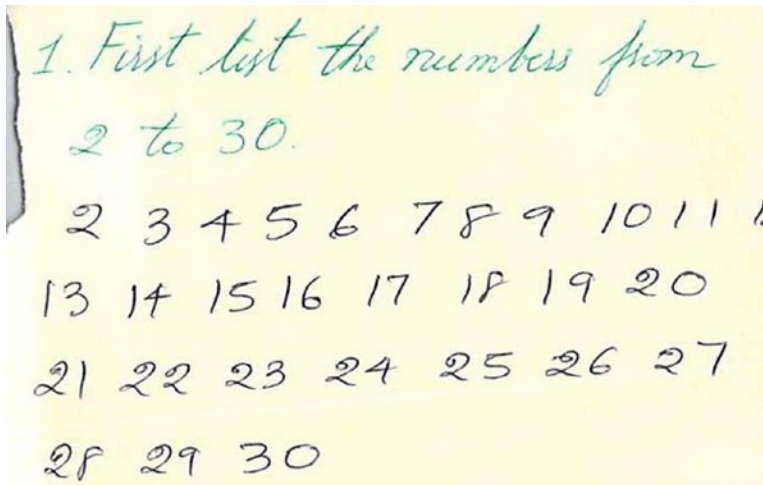 1. First list the numbers from
2 to 30.
2 3 4 5 6 7 8 9 10 11
13 14 15 16 17 18 19 20
21 22 23 24 25 26 27
28 29 30